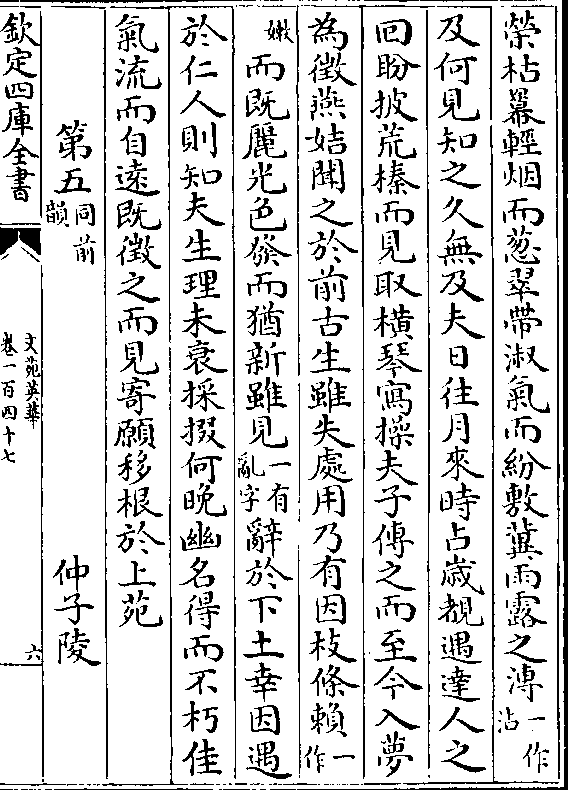 榮枯羃輕烟而葱翠帶淑氣而紛敷冀雨露之溥一作沾
及何見知之久無及夫日往月來時占歲覩遇達人之
回盼披荒榛而見取橫琴寫操夫子傳之而至今入夢
為徵燕姞聞之於前古生雖失處用乃有因枝條頼一作
嫩而既麗光色發而猶新雖見一有亂字辭於下土幸因遇
於仁人則知夫生理未衰採掇何晚幽名得而不朽佳
氣流而自遠既徵之而見寄願移根於上苑
第五同前韻 仲子陵
欽定四庫全書 文苑英華 卷一百四十七 六